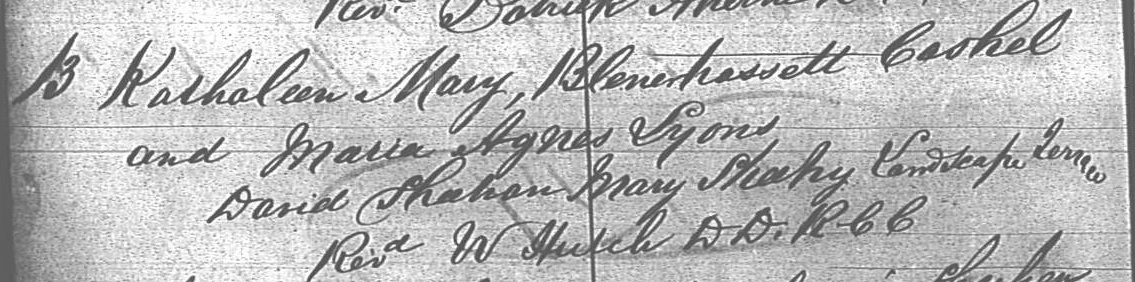 Revd Patrick
B Kathaleen Mary, Blenerhassett Cashel
and Maria Agnes Lyons
David Sheehan Mary Sheehy Landscape Terrace
Revd W Hutch D.D. R C C
Sheehan